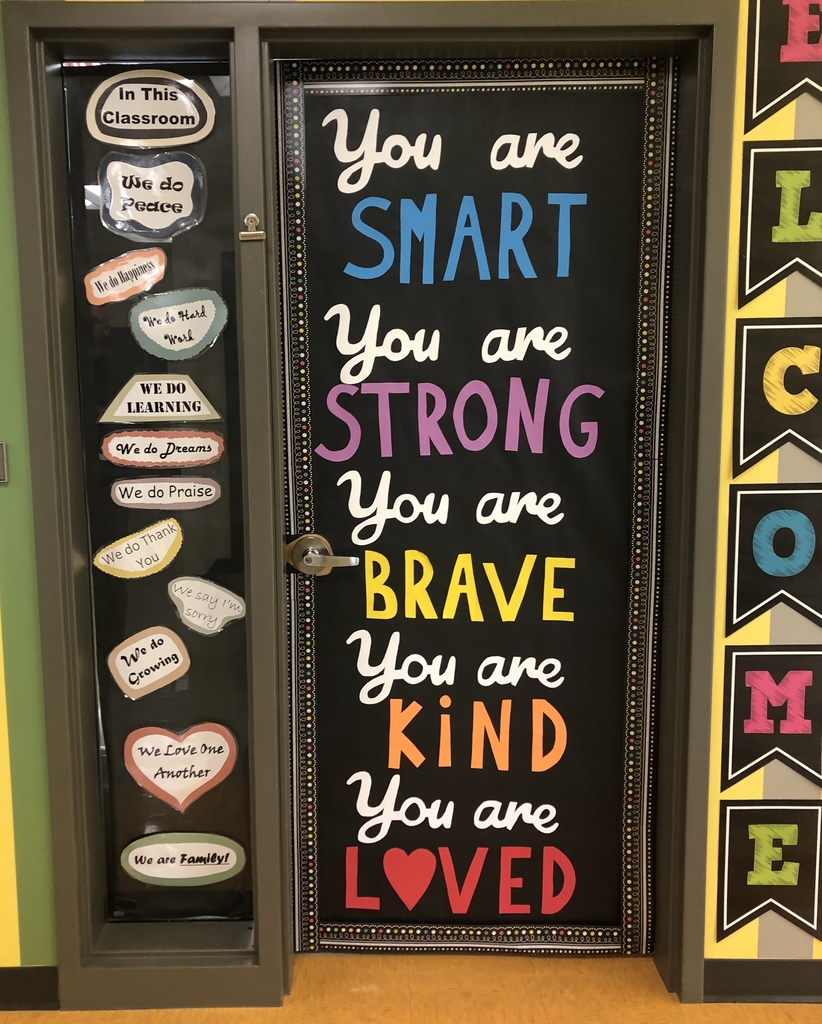 In This
Classroom
We do
Peace
We do Happiness
We do Hard
Work
WE DO
LEARNING
We do Dreams
We do Praise
We do Thank
You
We say I'm
sorry
We do
Growing
We Love One
Another
We are Family!
You are
SMART
You are
STRONG
You are
BRAVE
You are
KiND
You are
L♥VED
E
L
C
O
M
E